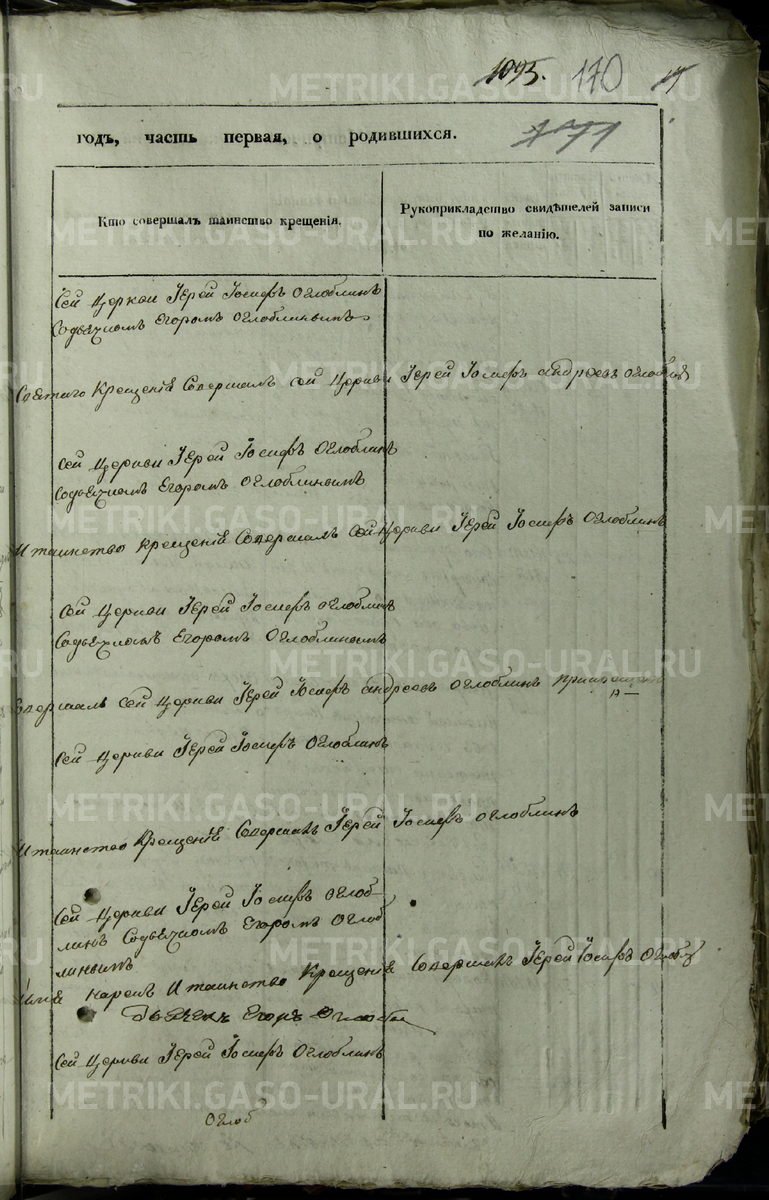 1095. 170
771
годъ, часть первая, о родившихся.
Кто совершалъ таинство крещенія.
Рукоприкладство свидѣтелей записи по желанію.
Сей Церкви Іерей Іосифъ Оглоблинъ
Содьячкомъ Егоромъ Оглоблинымъ
Святаго Крещенія Совершалъ сей Церкви Іерей Іосифъ андреевъ оглоблинъ
Сей Церкви Іерей Іосифъ Оглоблинъ
Содьячкомъ Егоромъ Оглоблинымъ
И таинство крещенія Совершалъ Сей Церкви Іерей Іосифъ Оглоблинъ
Сей Церкви Іерей Іосифъ оглоблинъ
Содьячкомъ Егоромъ Оглоблинымъ
Совершалъ сей Церкви Іерей Іосифъ андреевъ оглоблинъ
Сей Церкви Іерей Іосифъ Оглоблинъ
И таинство Крещенія Совершалъ Іерей Іосифъ оглоблинъ
Сей Церкви Іерей Іосифъ Оглоб-
линъ Содьячкомъ Егоромъ Оглоб
линымъ
имя нарекъ И таинство Крещенія Совершалъ Іерей Іосифъ Оглоб
дьячекъ Егоръ Оглоблин
Сей Церкви Іерей Іосифъ Оглоблинъ
Оглоб
METRIKI.GASO-URAL.RU